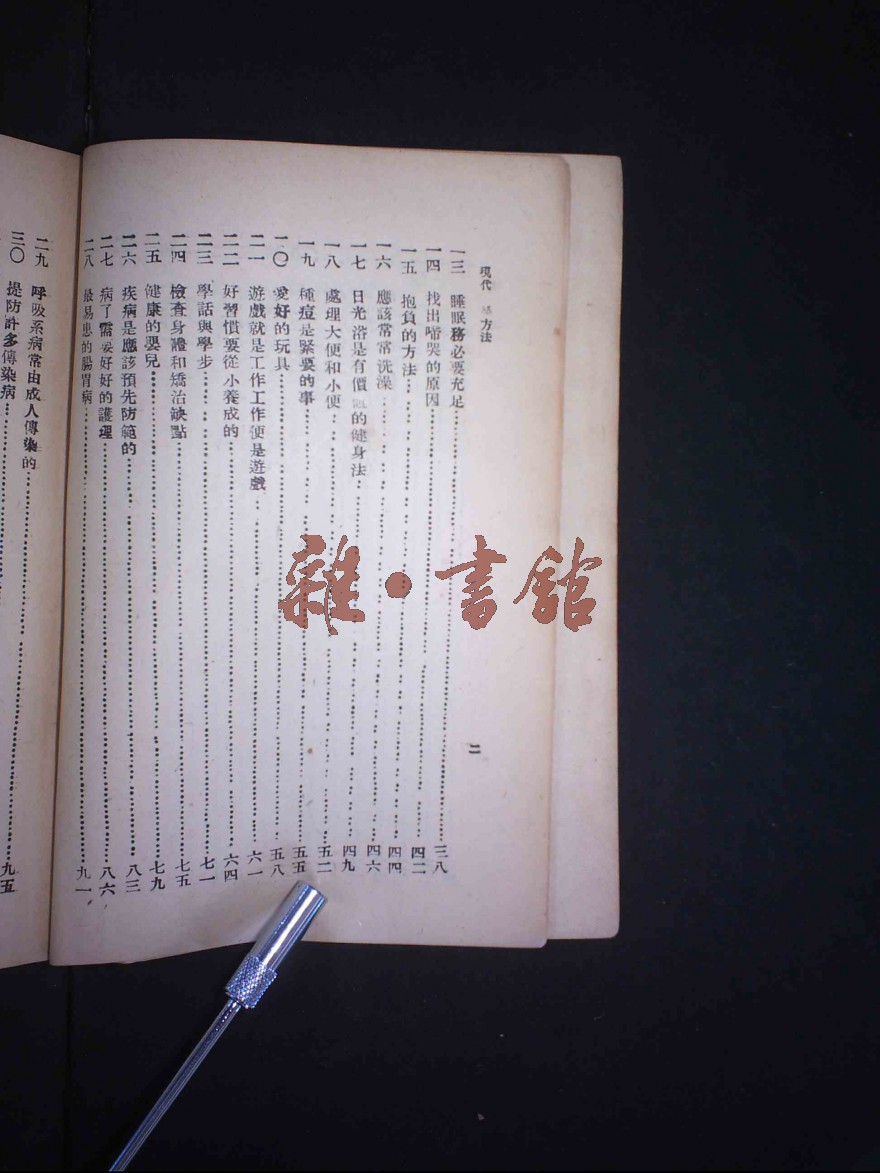 現代 方法
一三 睡眠務必要充足 三八
一四 找出啼哭的原因 四二
一五 抱負的方法 四四
一六 應該常常洗澡 四六
一七 日光浴是有價 的健身法 四九
一八 處理大便和小便 五二
一九 種痘是緊要的事 五五
一〇 愛好的玩具 五八
二一 遊戲就是工作工作便是遊戲 六一
二二 好習慣要從小養成的 六四
二三 學話與學步 七一
二四 檢查身體和矯治缺點 七五
二五 健康的嬰兒 七九
二六 疾病是應該預先防範的 八三
二七 病了需要好好的護理 八六
二八 最易患的腸胃病 九一
二
二九 呼吸系病常由成人傳染的
三〇 提防許多傳染病 九五
雜·書館